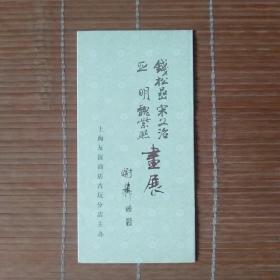 錢松嵒宋文治
亞明魏紫熙
畫展
謝稚柳題
上海友誼商店古玩分店主辦